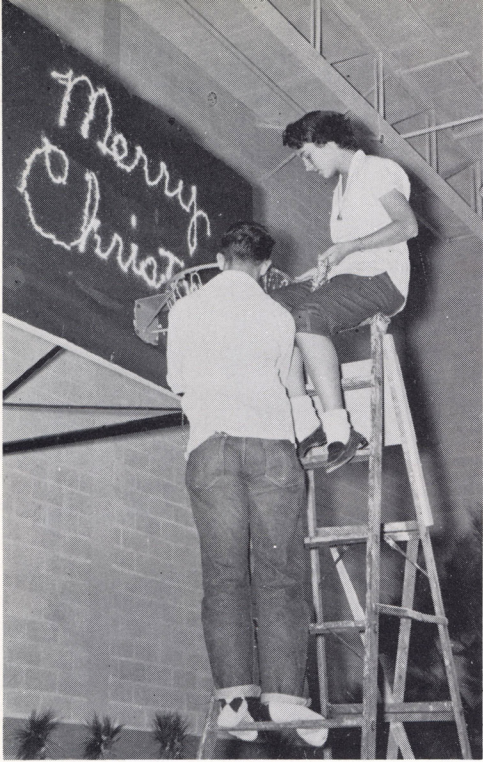 Merry
Christ